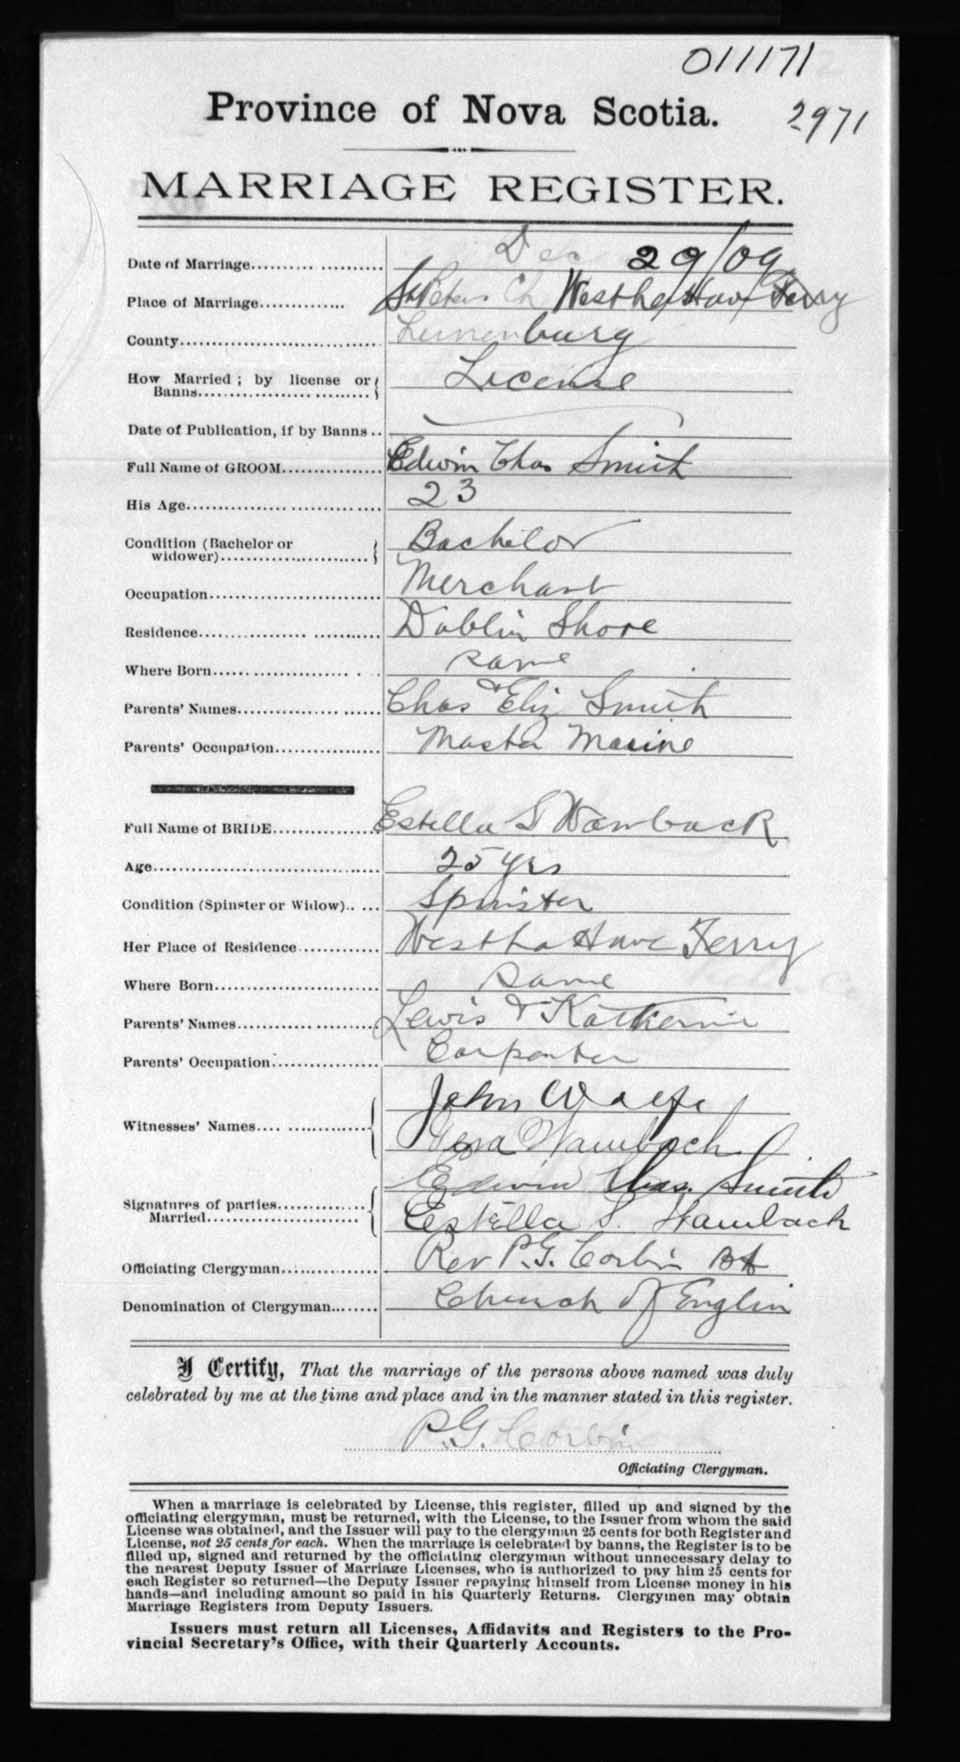 011171
Province of Nova Scotia.
2971
MARRIAGE REGISTER.
Date of Marriage.......... Dec 29/09
Place of Marriage.......... St Peters Ch West LaHave Ferry
County.......... Lunenburg
How Married; by license or Banns.......... License
Date of Publication, if by Banns..
Full Name of GROOM.......... Edwin Chas Smith
His Age.......... 23
Condition (Bachelor or widower).......... Bachelor
Occupation.......... Merchant
Residence.......... Dublin Shore
Where Born.......... same
Parents' Names.......... Chas & Eliz Smith
Parents' Occupation.......... Master Marine
Full Name of BRIDE.......... Estella S Wamback
Age.......... 25 yrs
Condition (Spinster or Widow).. .... Spinster
Her Place of Residence.......... West La Have Ferry
Where Born.......... same
Parents' Names.......... Lewis & Katherine
Parents' Occupation.......... Carpenter
Witnesses' Names.......... John
Wambach
Signatures of parties Married.......... Edwin Chas. Smith
Estella S. Wambach
Officiating Clergyman.......... Rev P.G. Corbin BA
Denomination of Clergyman.......... Church of Englin
I Certify, That the marriage of the persons above named was duly
celebrated by me at the time and place and in the manner stated in this register.
P.G. Corbin
Officiating Clergyman.
When a marriage is celebrated by License, this register, filled up and signed by the
officiating clergyman, must be returned, with the License, to the Issuer from whom the said
License was obtained, and the Issuer will pay to the clergyman 25 cents for both Register and
License, not 25 cents for each. When the marriage is celebrated by banns, the Register is to be
filled up, signed and returned by the officiating clergyman without unnecessary delay to
the nearest Deputy Issuer of Marriage Licenses, who is authorized to pay him 25 cents for
each Register so returned—the Deputy Issuer repaying himself from License money in his
hands—and including amount so paid in his Quarterly Returns. Clergymen may obtain
Marriage Registers from Deputy Issuers.
Issuers must return all Licenses, Affidavits and Registers to the Pro-
vincial Secretary's Office, with their Quarterly Accounts.